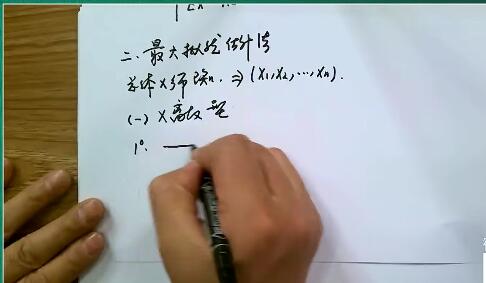 二、最大拟然估计法
总体X 
⇒ (X₁,X₂,…,Xₙ).
(一) X离散型
1°.